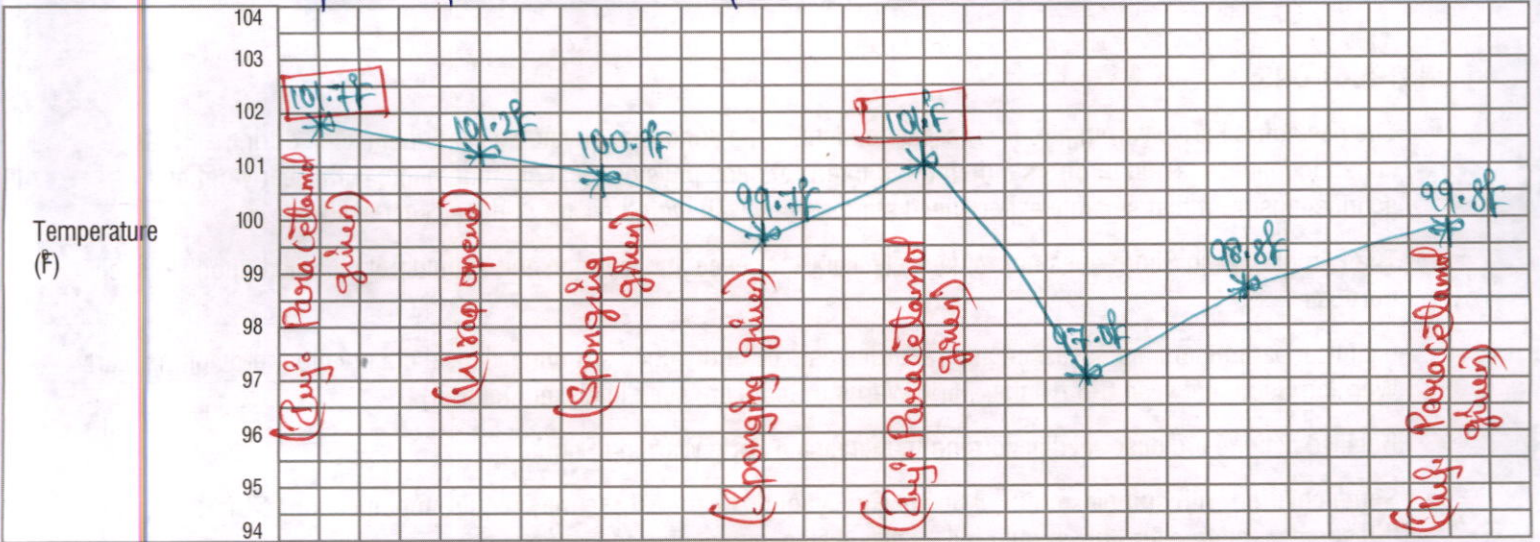 104
103
102
101
100
99
98
97
96
95
94
Temperature
(°F)
101.7°F
101.2°F
100.9°F
99.7°F
101°F
97.0°F
98.8°F
99.8°F
(Inj. Paracetamol
given)
(Wrap opend)
(Sponging
given)
(Sponging given)
(Inj. Paracetamol
given)
(Inj. Paracetamol
given)